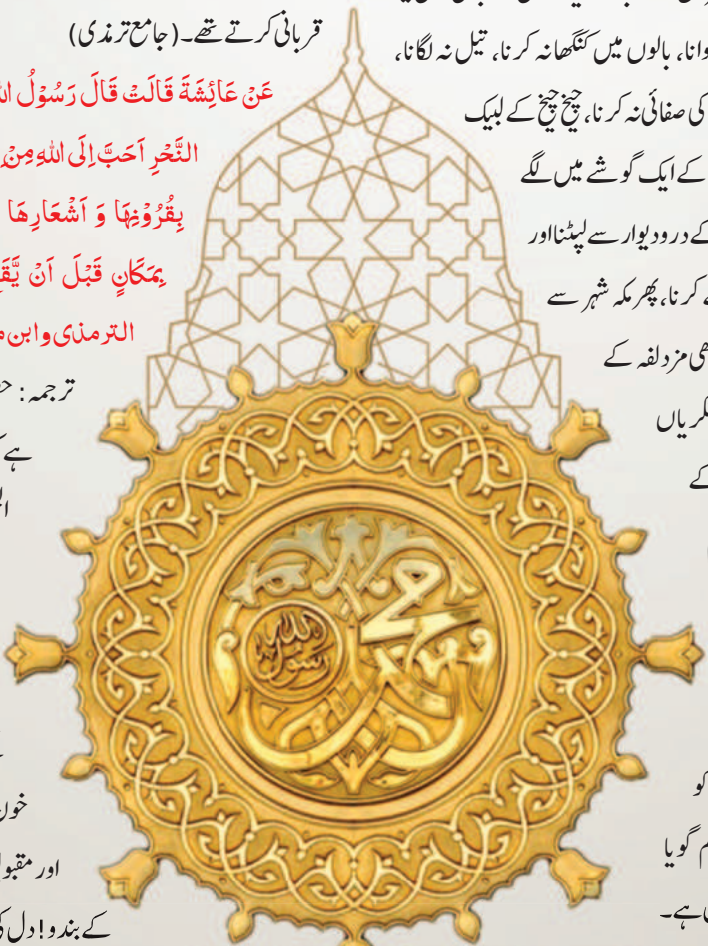 وانا، بالوں میں کنگھا نہ کرنا، تیل نہ لگانا،
کی صفائی نہ کرنا، چیخ چیخ کے لبیک
کے ایک گوشے میں لگے
کے در و دیوار سے لپٹنا اور
کرنا، پھر مکہ شہر سے
مزدلفہ کے
کریاں
کے
کو
م گویا
ہے۔
قربانی کرتے تھے۔ (جامع ترمذی)
عَنْ عَائِشَةَ قَالَتْ قَالَ رَسُوْلُ
النَّحْرِ اَحَبَّ اِلَى اللهِ مِنْ
بِقُرُوْنِهَا وَ اَشْعَارِهَا
بِمَكَانٍ قَبْلَ اَنْ
الترمذی وابن
ترجمہ:
ہے
خون
اور مقبو
کے بندو! دل کی
محمد
الله رسول